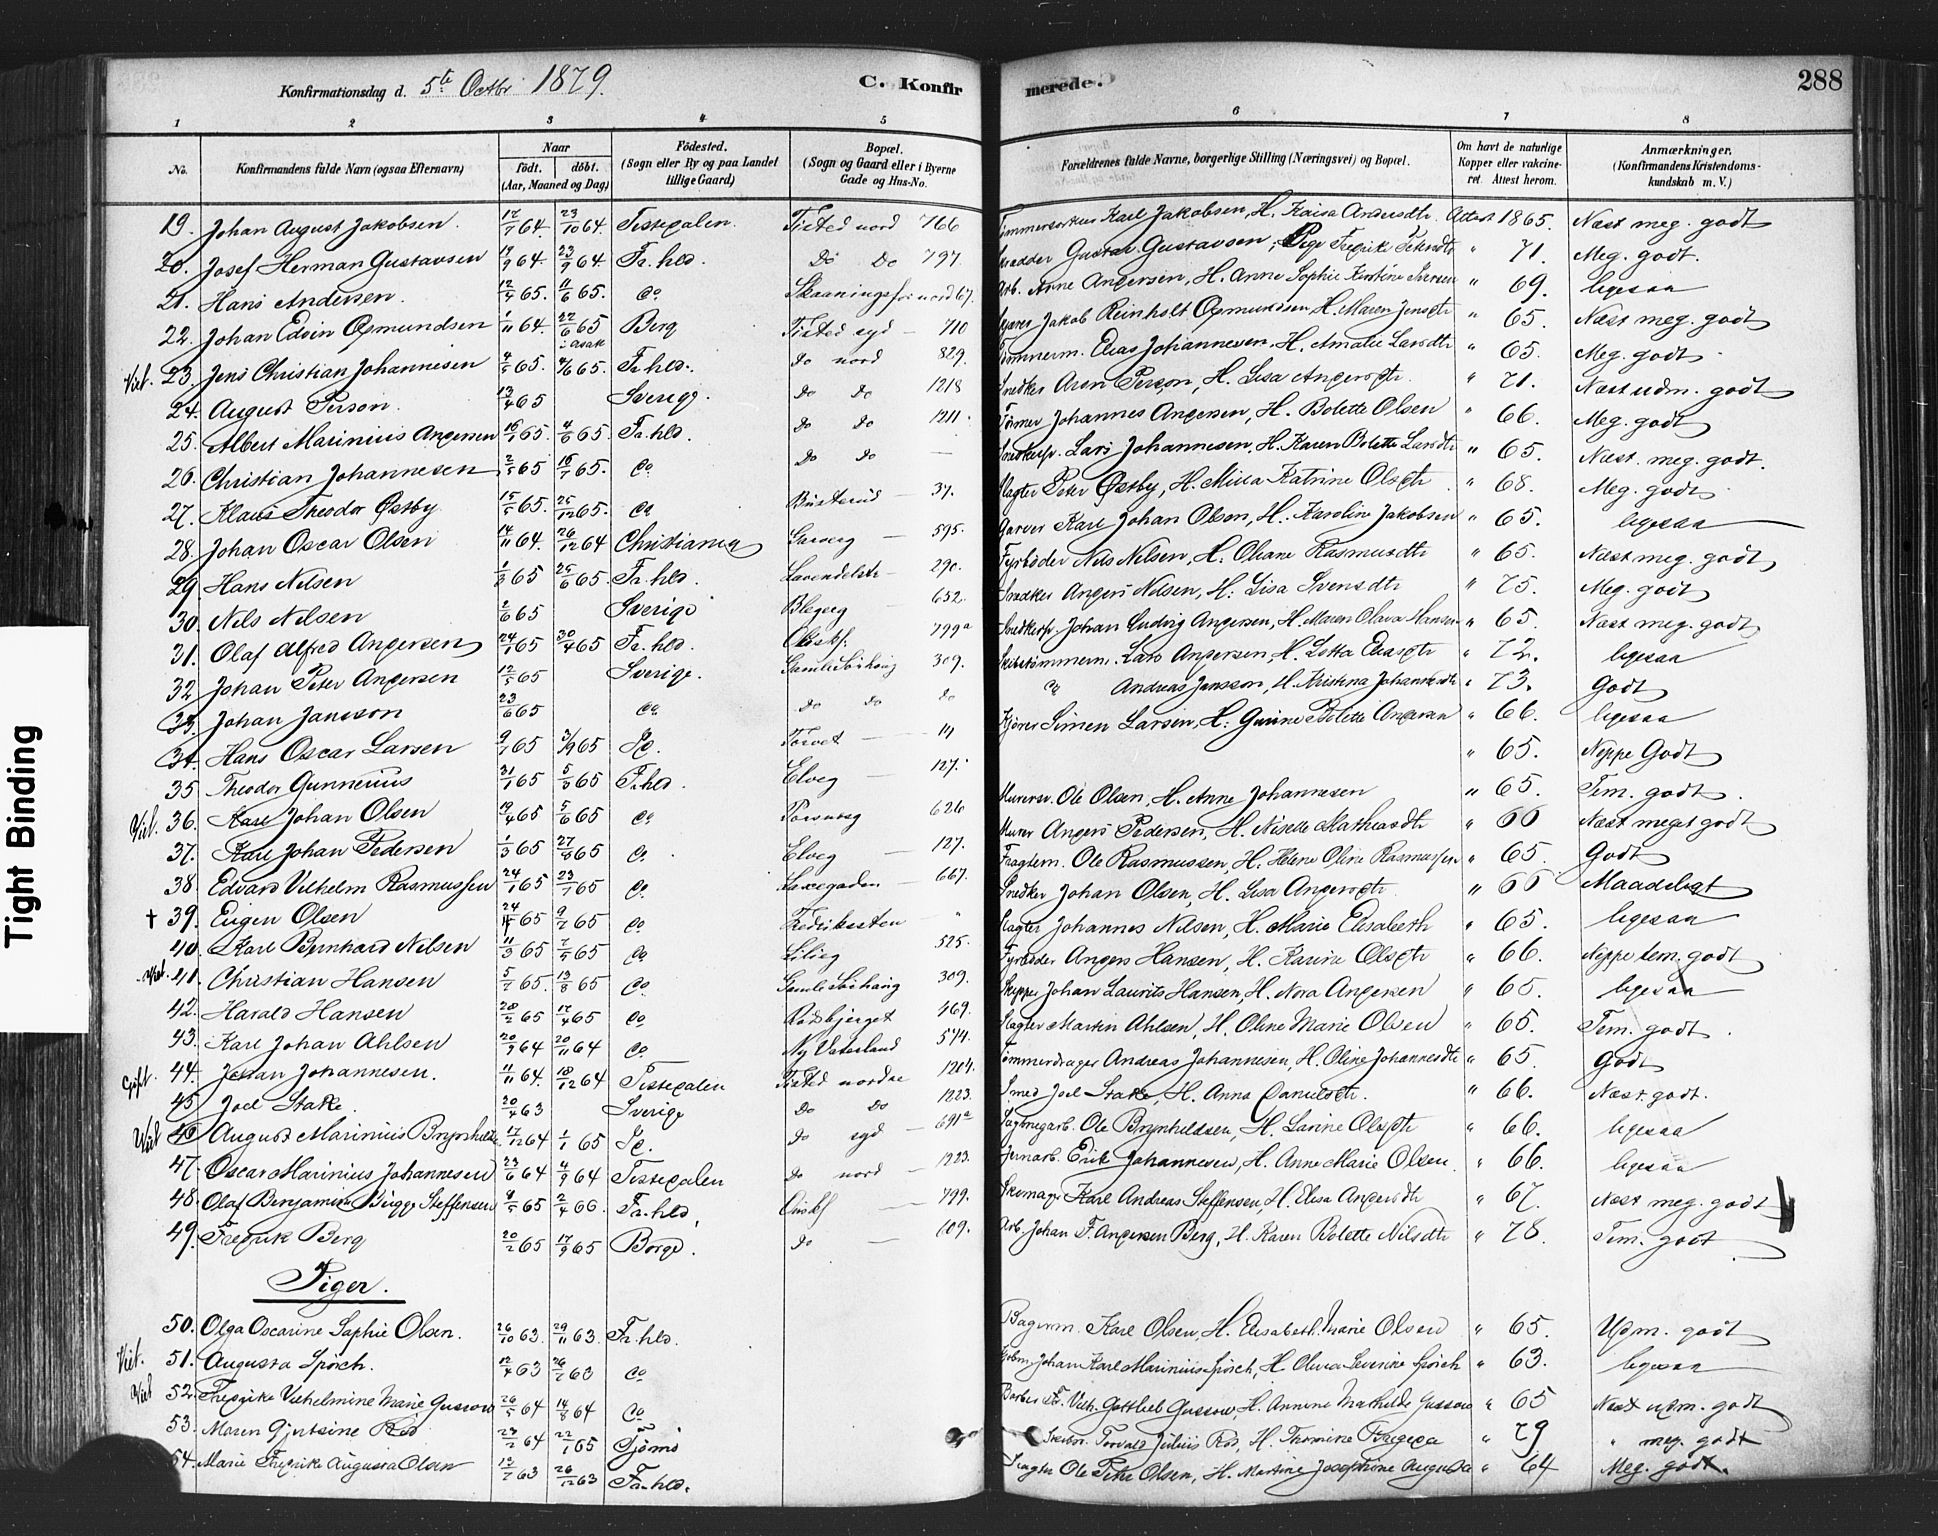 Konfirmationsdag d. 5te Octbr 1879. C. Konfirmerede. 288
1 2 3 4 5 6 7 8
No. Konfirmandens fulde Navn (ogsaa Efternavn) Naar født. døbt. (Aar, Maaned og Dag) Fødested. (Sogn eller By og paa Landet tillige Gaard) Bopæl. (Sogn og Gaard eller i Byerne Gade og Hus-No. Forældrenes fulde Navne, borgerlige Stilling (Næringsvei) og Bopæl. Om havt de naturlige Kopper eller vakcineret. Attest herom. Anmærkninger, (Konfirmandens Kristendomskundskab m. V.)
19. Johan August Jakobsen. 12/7 64. 23/10 64. Tistedalen. Tisted nord 766 Karl Jakobsen, H. Kaisa Andersdtr. Attest 1865. Næst meg. godt
20. Josef Herman Gustavsen 13/9 64. 23/9 64. Fr.hld. Do Do 797. Gustav Gustavsen, Pige Fredrik " 71. Meg. godt.
21. Hans Andersen. 12/4 65. 11/6 65. do nord 67. Arb. Arne Andersen, H. Anne Sophie Kirstine Iversen " 69. ligesaa
22. Johan Edvin Osmundsen 1/11 64. 22/6 65 i Asak Berg Tisted syd 710 Jakob Reinholt Osmundsen H. Maren Jensdtr " 65. Næst meg. godt
Viet. 23. Jens Christian Johannesen 4/5 65. 4/6 65. Fr.hld. do nord 829. Tømmerm. Elias Johannesen, H. Amalie Larsdtr " 65. Meg. godt
24. August Person. 13/4 65 Sverige. do do 1218 Snedker Aron Person, H. Lisa Andersdtr. " 71. Næst udm. godt
25. Albert Marinius Andersen 16/1 65. 4/6 65. Fr.hld. do do 1211. Johannes Andersen, H. Bolette Olsen " 66. Meg. godt
26. Christian Johannesen 2/5 65 16/7 65. do do do — Lars Johannesen, H. Karen Bolette Larsdtr " 65. Næst. meg. godt.
27. Klaus Theodor Østby 15/5 65. 25/12 65. do Busterud — 37. Slagter Peter Østby, H. Milla Katrine Olsdtr. " 68. Meg. godt
28. Johan Oscar Olsen 14/11 64. 26/12 64 Christiania 595. Garver Karl Johan Olsen, H. Karoline Jakobsen " 65. ligesaa
29. Hans Nilsen 1/3 65 25/6 65 Fr.hld. Lavendelstr — 290. Fyrbøder Nils Nilsen, H. Oliane Rasmusdtr " 65. Næst meg. godt
30. Nils Nilsen 2/6 65 Sverige — 652. Snedker Anders Nilsen, H. Lisa Svensdtr " 75. Meg. godt
31. Olaf Alfred Andersen 24/1 65 30/4 65 Fr.hld. 799a Johan Ludvig Andersen, H. Maren Olava Hansen " 65. Næst meg. godt
32 Johan Peter Andersen 12/5 65 Sverige. 309. Skibstømmerm. Lars Andersen, H. Lotta Eliasdtr " 72. ligesaa
33. Johan Jansson 23/6 65 do do do do do Andreas Jansson, H. Kristina Johannesdtr " 73. Godt
34. Hans Oscar Larsen 9/1 65 3/9 65 Torvet — Kjører Simen Larsen, H. Gurine Bolette Andersen " 66. ligesaa
35 Theodor Gunnerius 31/1 65 5/3 65 Fr.hld. Elveg — 127. " 65. Neppe Godt
Viet. 36. Karl Johan Olsen 19/4 65 5/6 65 do 626 Murersv. Ole Olsen, H. Anne Johannesen " 65. Tem. godt.
37. Karl Johan Pedersen 1/3 65 27/8 65 do. Elveg — 127. Murer Anders Pedersen, H. Nisette Mathiasdtr " 66 Næst meget godt
38. Edvard Vilhelm Rasmussen 24/1 65 23/7 65 do Saxegaden — 667. Fragtem. Ole Rasmussen, H. Helene Oline Rasmussen " 65. Godt
† 39. Eugen Olsen 24/1 65 9/2 65 do Fredriksten " Snedker Johan Olsen, H. Lisa Andersdtr. " 66 Maadeligt
40. Karl Bernhard Nilsen 11/3 65 7/5 65 do 525. Slagter Johannes Nilsen, H. Marie Elisabeth " 65. ligesaa
Viet. 41. Christian Hansen 5/7 65. 13/8 65 do 309. Fyrbøder Anders Hansen, H. Karine Olsdtr " 66. Neppe tem. godt
42. Harald Hansen 20/2 65 17/4 65 do Rødsbjerget 469. Skipper Johan Laurits Hansen, H. Nora Andersen " 65. ligesaa
43. Karl Johan Ahlsen 20/9 64 20/11 64 do Ny Vaterland 574. Slagter Martin Ahlsen, H. Oline Marie Olsen " 65. Tem. godt.
Gift. 44. Johan Johannesen. 11/11 64. 18/12 64 Tistedalen Tisted nordre 1204. Tømmerdrager Andreas Johannesen, H. Oline Johannesdtr " 65. Godt
45. Joel Stake. 20/4 63 Sverige do do 1223. Smed Joel Stake, H. Anna Danielsdtr. " 66. Næst godt.
Viet 46 August Marinius Brynhildsen 17/12 64 1/1 65 do syd — 691a Ole Brynhildsen, H. Larine Olsdtr " 66. ligesaa
47. Oscar Marinius Johannesen 23/6 64 4/9 64 Tistedalen do nord — 1223. Jernarb. Erik Johannesen, H. Anne Marie Olsen. " 66. ligesaa
48. Olaf Benjamin Bügge Steffensen 9/5 65 2/4 66 Fr.hld. — 799. Skomager Karl Andreas Steffensen, H. Elisa Andersdtr " 67. Næst meg. godt
49. Fredrik Berg 20/2 65 17/9 65 Borge. do — 609. Arb. Johan F. Andersen Berg, H. Karen Bolette Nilsdtr " 78. Tem. godt
Piger.
50. Olga Oscarine Sophie Olsen. 26/10 63. 29/11 63. Fr.hld. Bagerm. Karl Olsen, H. Elisabeth Marie Olsen " 65. Udm. godt
Viet. 51. Augusta Spørch. 12/4 63 26/7 63 do Johan Karl Marinius Spørch, H. Olivia Severine Spørch " 63. ligesaa
Viet 52. Fredrikke Vilhelmine Marie Gussow 26/5 64 14/8 64 do Barber Fr. Vilh. Gottlieb Gussow, H. Annine Mathilde Gussow " 65 Næst udm. godt
53. Maren Gjurtsine Rød 23/2 64 22/1 65 Tjømø Torvald Julius Rød, H. Thomine " 79 " meg. godt
54. Marie Fredrikke Augusta Olsen 13/7 63 26/12 63 Fr.hld. Ole Peter Olsen, H. Martine Josephine Augusta " 64 Meg. godt.
Tight Binding